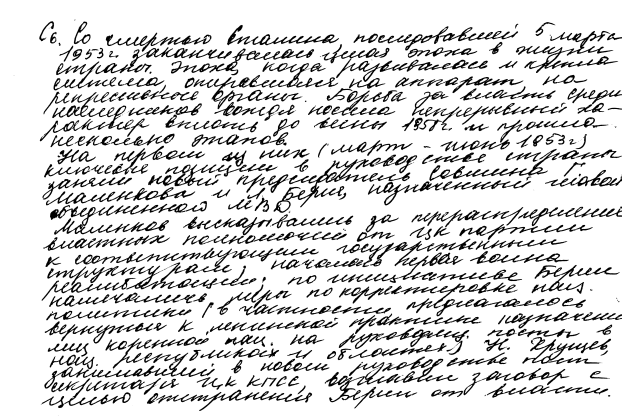 С6. Со смертью Сталина, последовавшей 5 марта
1953г. заканчивалась целая эпоха в жизни
страны. Эпоха, когда развивалась и крепла
система, опиравшаяся на аппарат, на
репрессивные органы. Борьба за власть среди
наследников вождя носила непрерывный ха-
рактер вплоть до весны 1958г. и прошла
несколько этапов.
На первом из них (март - июнь 1953г)
ключевые позиции в руководстве страны
заняли новый председатель Совмина Г.
Маленков и Л. Берия, назначенный главой
объединенного МВД.
Маленков высказывались за перераспределение
властных полномочий от ЦК партии
к соответствующим государственным
структурам, началась первая волна
реабилитации; по инициативе Берии
намечались меры по корректировке нац.
политики (в частности, предлагалось
вернуться к ленинской практике назначения
лиц коренной нац. на руководящ. посты в
нац. республиках и областях) Н. Хрущев,
занимавший в новом руководстве пост
секретаря ЦК КПСС, возглавил заговор с
целью отстранения Берии от власти.